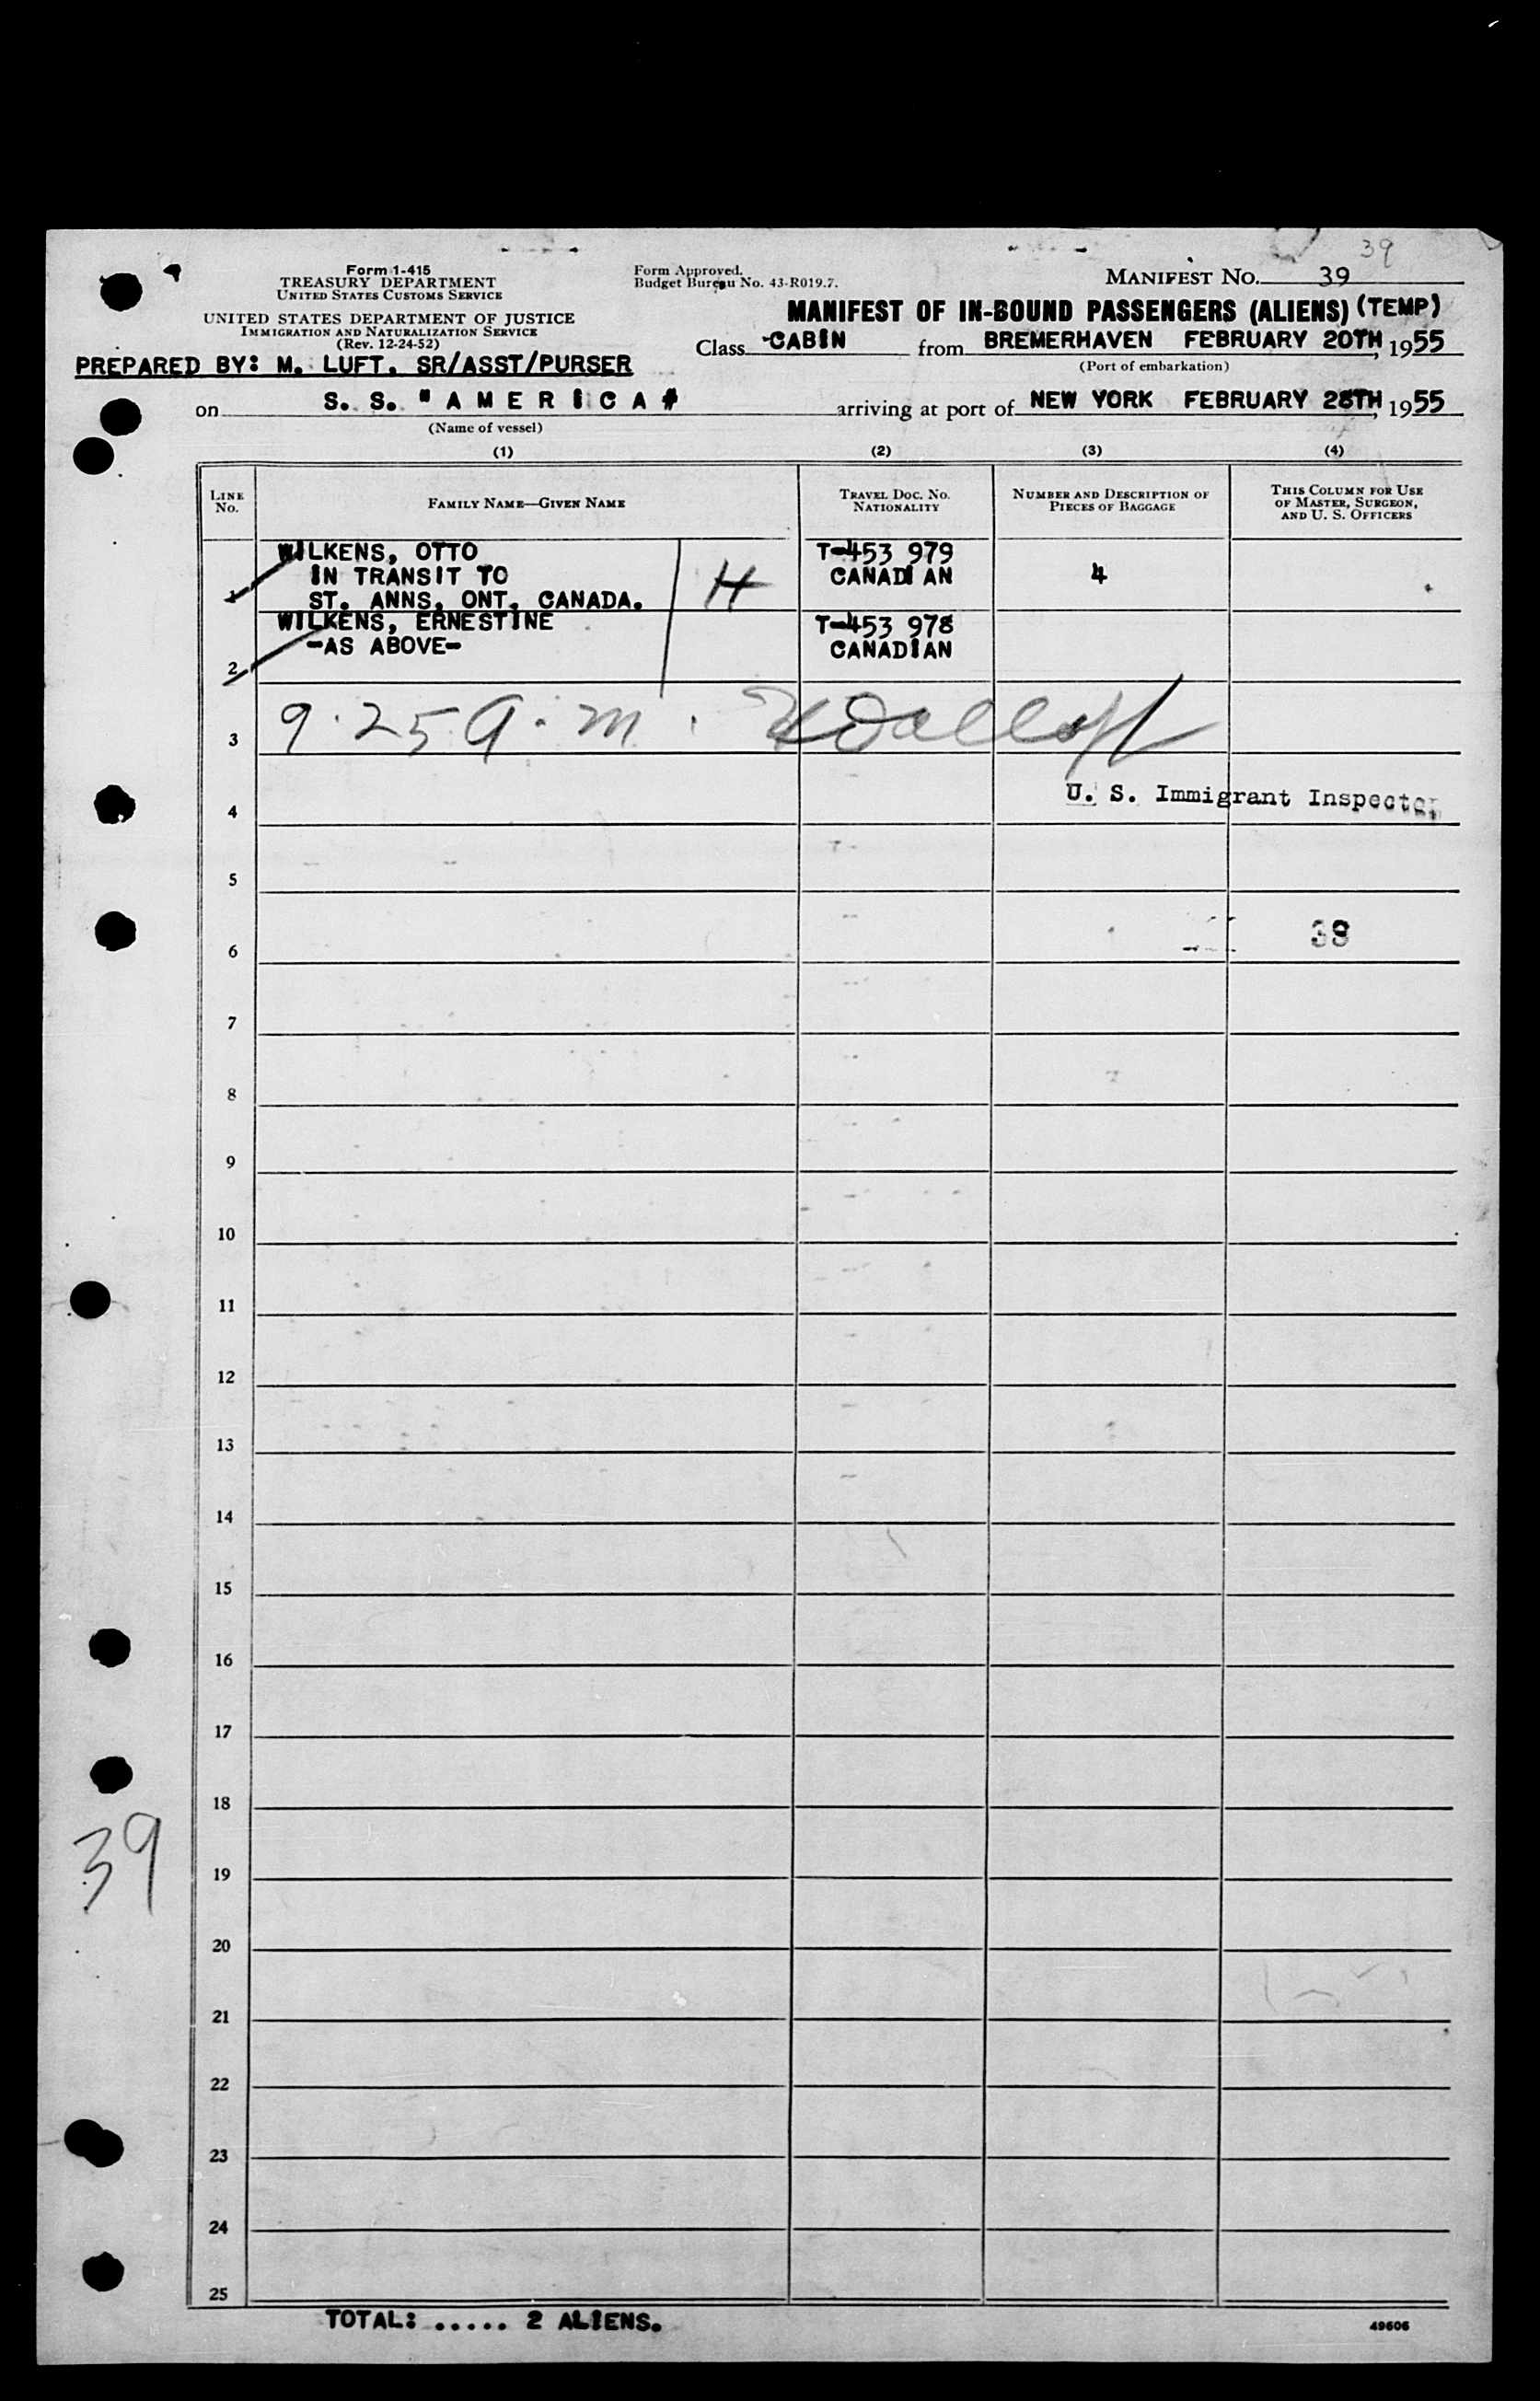 39
Form 1-415
TREASURY DEPARTMENT
UNITED STATES CUSTOMS SERVICE
UNITED STATES DEPARTMENT OF JUSTICE
IMMIGRATION AND NATURALIZATION SERVICE
(Rev. 12-24-52)
PREPARED BY: M. LUFT. SR/ASST/PURSER
Form Approved.
Budget Bureau No. 43-R019.7.
MANIFEST NO. 39
MANIFEST OF IN-BOUND PASSENGERS (ALIENS) (TEMP)
Class CABIN from BREMERHAVEN FEBRUARY 20TH, 1955
(Port of embarkation)
on S. S. "AMERICA" arriving at port of NEW YORK FEBRUARY 28TH, 1955
(Name of vessel)
(1) (2) (3) (4)
LINE
NO.
FAMILY NAME—GIVEN NAME
TRAVEL DOC. NO.
NATIONALITY
NUMBER AND DESCRIPTION OF
PIECES OF BAGGAGE
THIS COLUMN FOR USE
OF MASTER, SURGEON,
AND U. S. OFFICERS
WILKENS, OTTO T-453 979
IN TRANSIT TO H CANADIAN 4
1 ST. ANNS, ONT. CANADA.
WILKENS, ERNESTINE T-453 978
-AS ABOVE- CANADIAN
2
3 9.25 a.m.
U. S. Immigrant Inspector
4
5
6 39
7
8
9
10
11
12
13
14
15
16
17
18
39
19
20
21
22
23
24
25
TOTAL: ..... 2 ALIENS.
49606